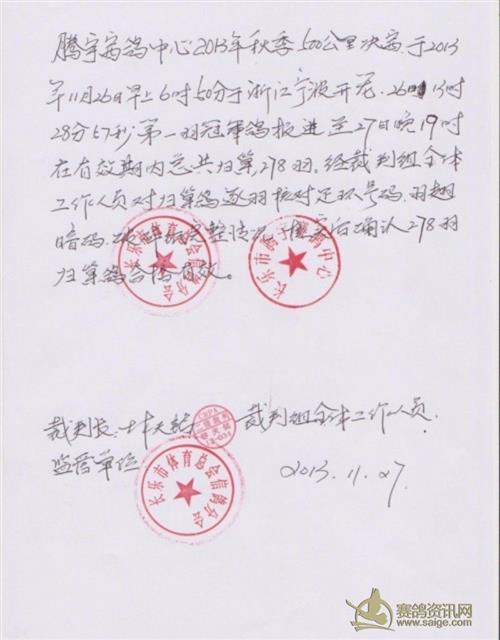 腾宇赛鸽中心2013年秋季500公里决赛.于2013
年11月26日早上6时50分于浙江宁波开笼.26日13时
28分57秒.第一羽冠军鸽报进.至27日晚19时
在有效期内总共归巢278羽.经裁判组全体
工作人员对归巢鸽逐羽核对足环号码.羽翅
暗码.完整情况.核实后确认278羽
归巢鸽合格有效。
长乐市体育总会信鸽分会
长乐市腾宇赛鸽中心
裁判长:林天
裁判组全体工作人员.
监管单位
CRPA
长乐市体育总会信鸽分会
2013.11.27.
赛鸽资讯网
www.saige.com